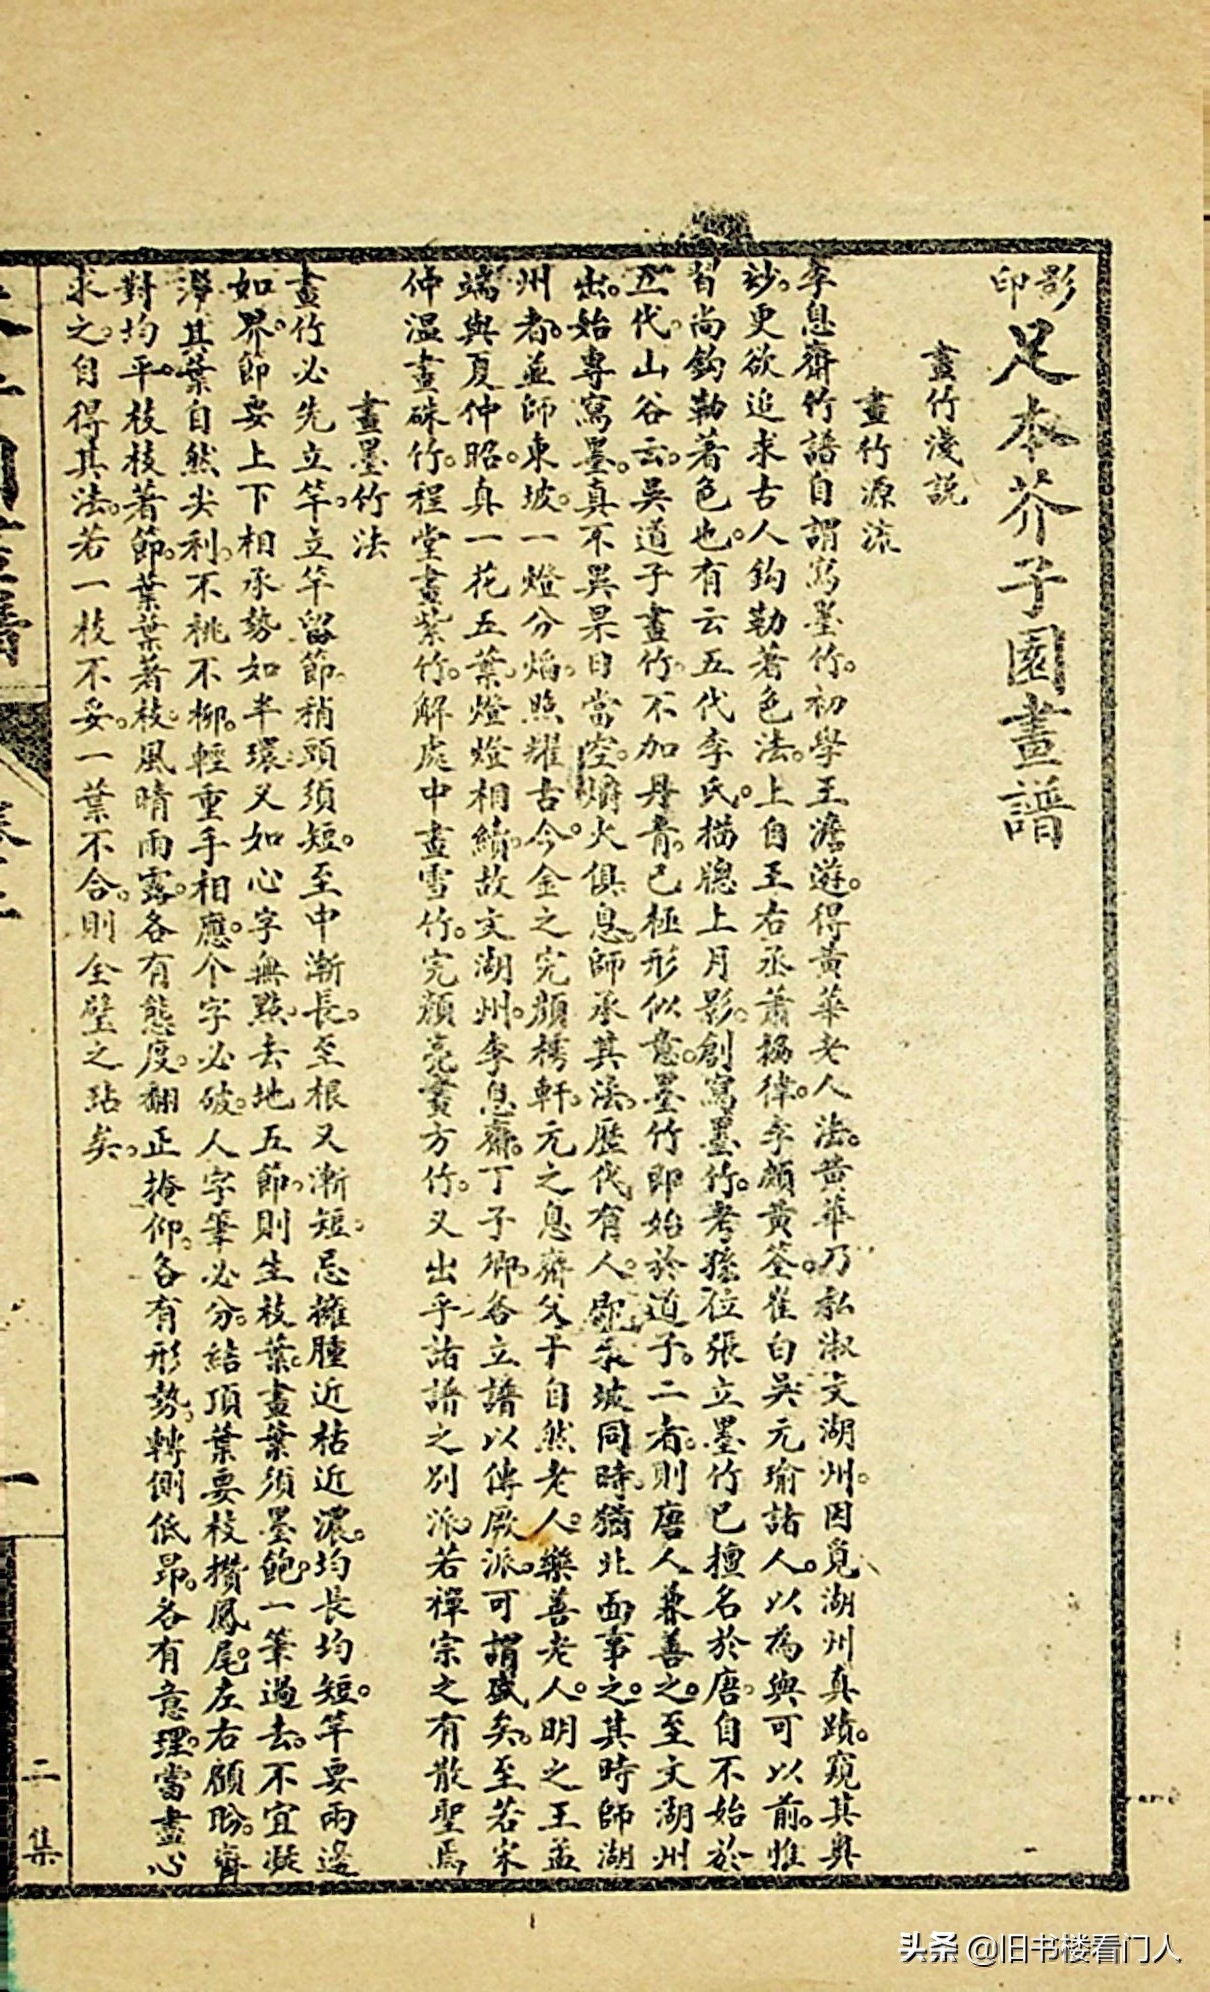 影印足本芥子園畫譜
畫竹淺説
畫竹源流
李息齋竹譜自謂寫墨竹。初學王澹遊。得黃華老人法。黃華乃私淑文湖州。因覓湖州真蹟。窺其奧
妙。更欲追求古人鈎勒著色法。上自王右丞蕭協律。李頗黃筌。崔白吳元瑜諸人。以為與可以前。惟
皆尚鈎勒著色也。有云五代李氏。描牕上月影。創寫墨竹。考孫位張立墨竹。已擅名於唐。自不始於
五代。山谷云。吳道子畫竹。不加丹青。已極形似。意墨竹即始於道子。二者。則唐人兼善之。至文湖州
出。始專寫墨。真不異杲日當空。爝火俱息。師承其法。歷代有人。即東坡同時。猶北面事之。其時師湖
州者。並師東坡。一燈分焰。照耀古今。金之完顏樗軒。元之息齋父子。自然老人。樂善老人。明之王孟
端與夏仲昭。真一花五葉。燈燈相續。故文湖州。李息齋。丁子卿。各立譜以傳厥派。可謂盛矣。至若宋
仲温畫硃竹。程堂畫紫竹。解處中畫雪竹。完顏亮畫方竹。又出乎諸譜之別派。若禪宗之有散聖焉
畫墨竹法
畫竹必先立竿。立竿留節。稍頭須短。至中漸長。至根又漸短。忌擁腫近枯近濃。均長均短。竿要兩邊
如界。節要上下相承。勢如半環。又如心字無點。去地五節。則生枝葉。畫葉須墨飽。一筆過去。不宜凝
滯。其葉自然尖利。不桃不柳。輕重手相應。个字必破。人字筆必分。結頂葉要枝攢鳳尾。左右顧盼。齊
對均平。枝枝著節。葉葉著枝。風晴雨露。各有態度。翻正掩仰。各有形勢。轉側低昂。各有意理。當盡心
求之。自得其法。若一枝不妥。一葉不合。則全璧之玷矣。
一
二集
头条 @旧书楼看门人